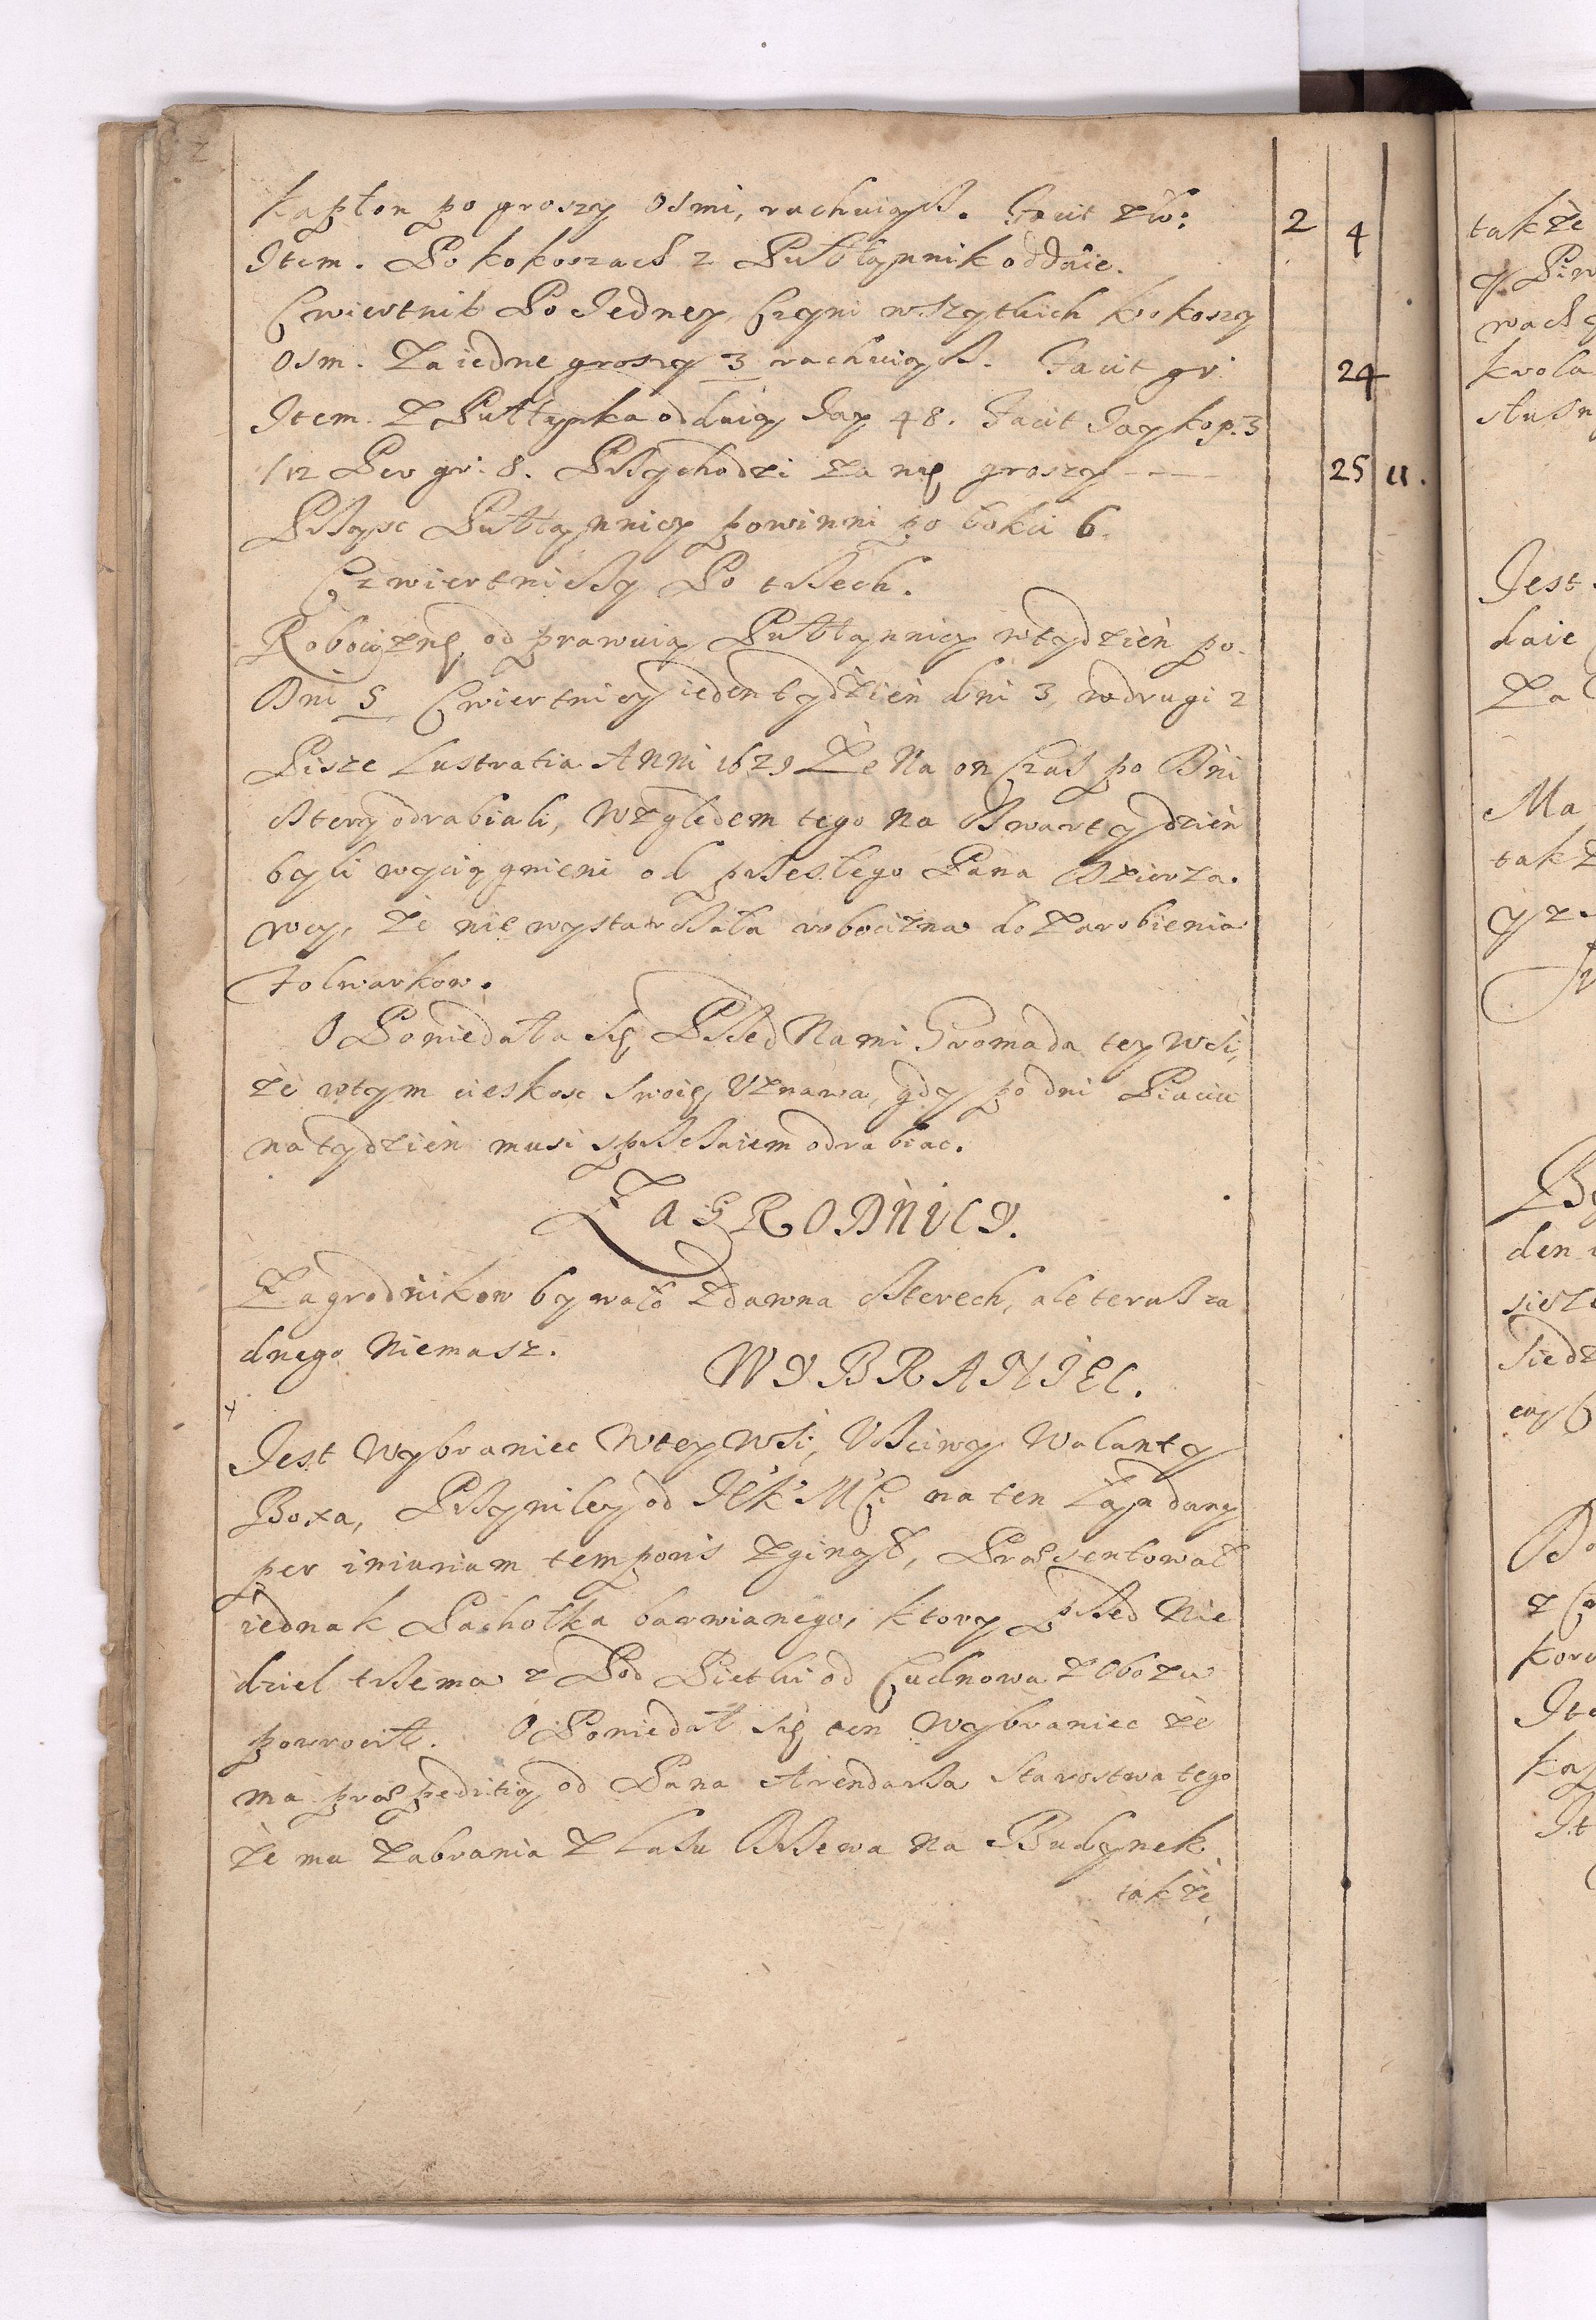 Kapłon po groszy osmi, rachuiąc. Facit zł: 2 4
Item. Po kokoszach 2 Pułłannik oddaie.
Cwiertnik Po Jedney, Czyni wszytkich kokoszy
osm. Za iedne groszy 3 rachuiąc. Facit gr 24
Item. Z Pułłanka oddaią Jay 48. Facit Jay kop. 3
1/12 Per gr: 8. Przychodzi za nie groszy 25 11.
Prząsc Pułłannicy powinni po łokci 6.
Czwiertniczy Po trzech.
Robociznę odprawuią Pułłannicy w tydzień po
Dni 5 Cwiertnicy ieden tydzień dni 3, w drugi 2
Pisze Lustratia Anni 1629 Że Na on Czas po Dni
cztery odrabiali, Względem tego na czwarty dzień
byli wyciągnieni od przeszłego Pana Dzierża-
wcy, że nie wystarczała robocizna do zarobienia
folwarkow.
Opowiedała się Przed Nami Gromada tey Wsi,
że w tym cieskosc swoię Uznawa, gdy po dni Piąciu
na tydzień musi sprzężaiem odrabiac.
ZAGRODNICY.
Zagrodnikow bywało Zdawna czterech, ale teraz ża
dnego Niemasz.
WYBRANIEC.
Jest Wybraniec W tey Wsi, Uczciwy Walanty
Boxa, Przywiley od JEK MCi na ten Łan dany
per iniuriam temporis zginął, Praesentował
iednak Pachołka barwianego, ktory przed Nie
dziel trzema z Pod Piethi od Cudnowa z Obozu
powrocił. Opowiedał się ten Wybraniec że
ma praepeditią od Pana Arendarza Starostwa tego
że mu zabrania z Lasu Drzewa na Budynek
także
także
y Piw
wach
krola
Jest
daie
Za
Ma
także
y z
den
Siedz
Ite